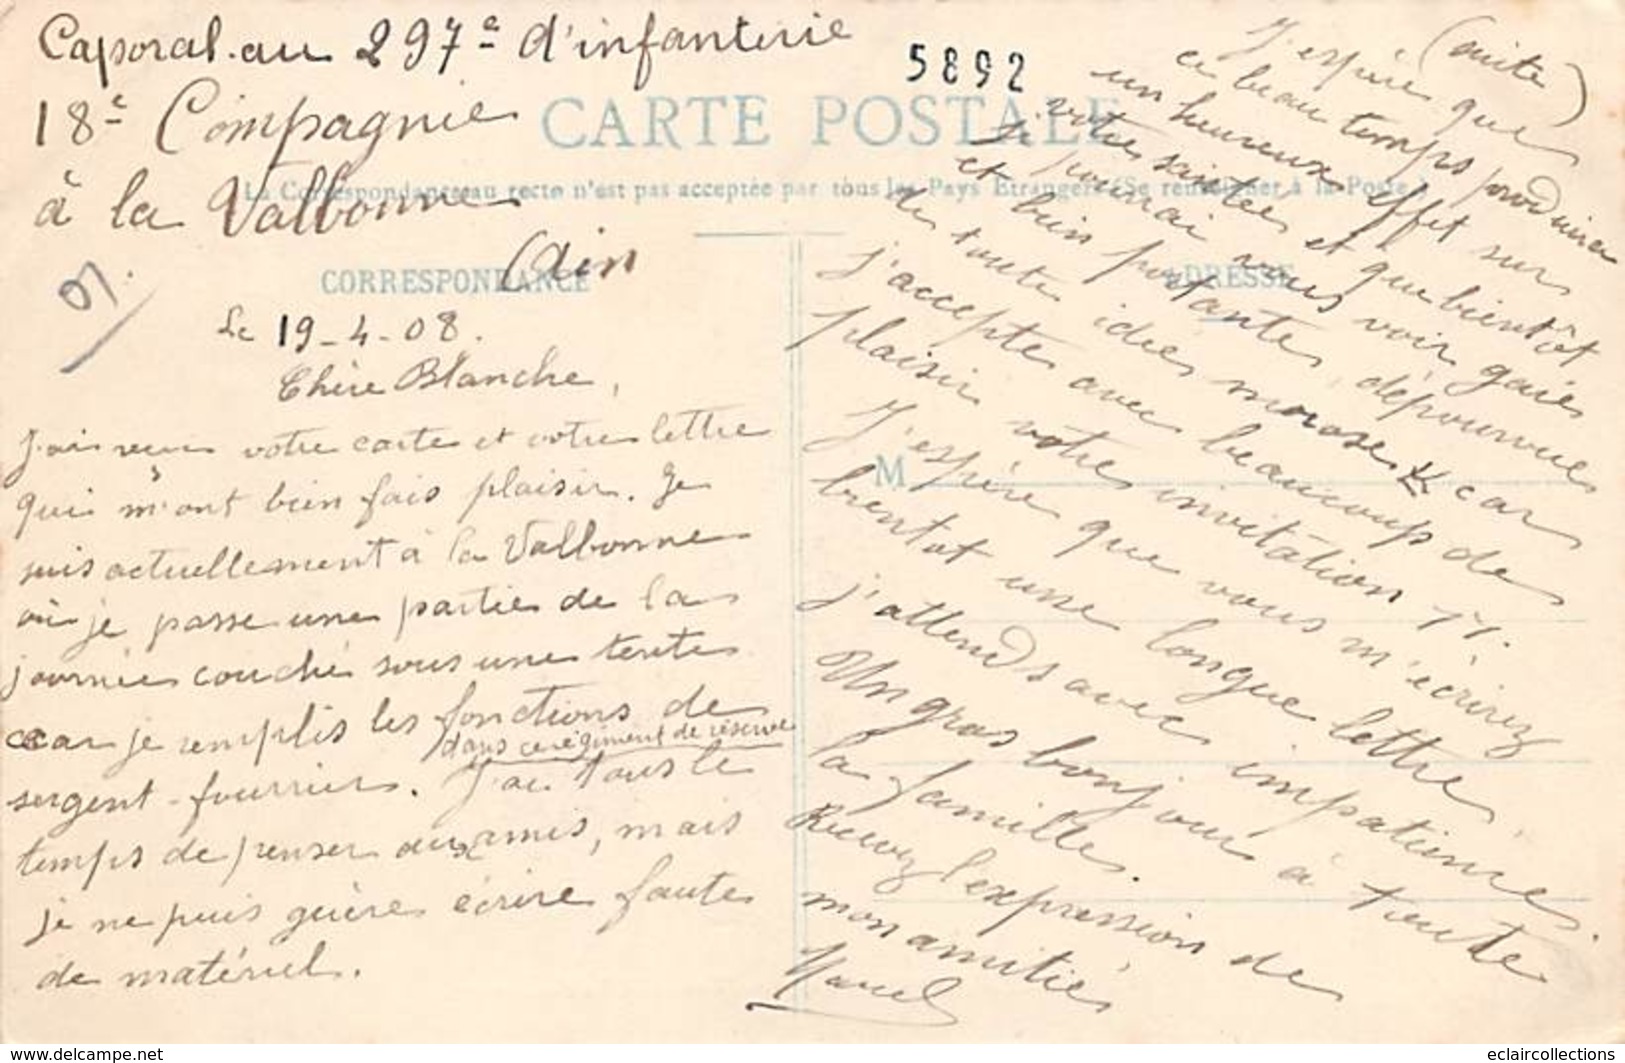 Caporal au 297e d'infanterie
18e Compagnie
à la Valbonne
(Ain
5892
CARTE POSTALE
La Correspondance au recto n'est pas acceptée par tous les Pays Etrangers (Se renseigner à la Poste.)
CORRESPONDANCE
ADRESSE
M
07.
Le 19-4-08.
Chère Blanche,
J'ai reçu votre carte et votre lettre
qui m'ont bien fais plaisir. Je
suis actuellement à la Valbonne
où je passe une partie de la
journée couché sous une tente
car je remplis les fonctions de
sergent-fourrier. dans ce régiment de réserve J'ai tous le
temps de penser aux amis, mais
je ne puis guère écrire faute
de matériel.
(suite)
J'espère que
ce beau temps produira
un heureux effet sur
votre santée et que bientôt
je pourrai vous voir gaies
et bien portantes, dépourvue
de toute idée morose car
j'accepte avec beaucoup de
plaisir votre invitation
J'espère que vous m'écrirez
bientot une longue lettre,
j'attends avec impatience.
Un gros bonjour à toute
la famille.
Recevez l'expression de
mon amitié
Marcel
www.delcampe.net
eclaircollections